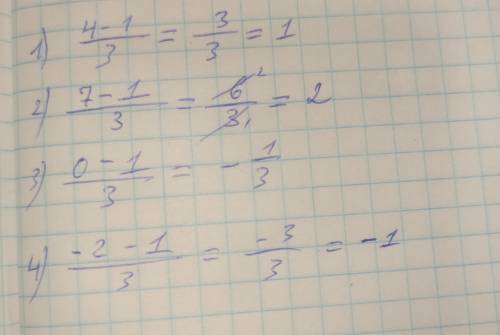 1) (4-1)/3 = 3/3 = 1
2) (7-1)/3 = 6²/3₁ = 2
3) (0-1)/3 = -1/3
4) (-2-1)/3 = -3/3 = -1